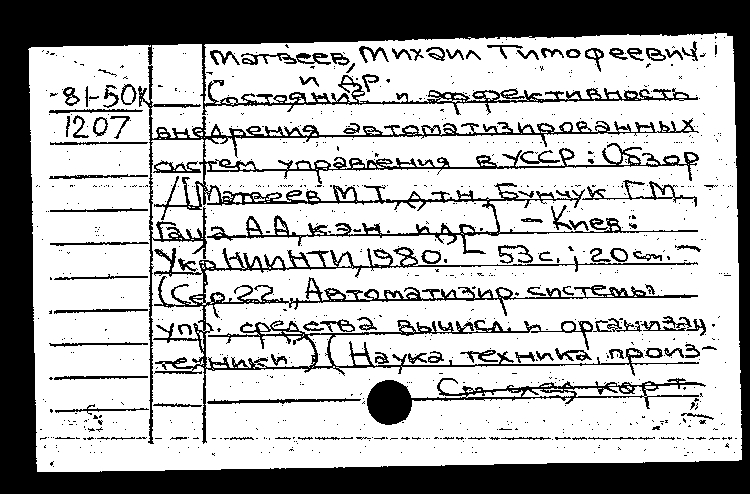 Матвеев, Михаил Тимофеевич
и др.
81-50К Состояние и эффективность
1207 внедрения автоматизированных
систем управления в УССР: Обзор
/[Матвеев М.Т., д.т.н., Бунчук Г.М.,
Гаца А.А., к.э.н. и др.]. – Киев:
УкрНИИНТИ, 1980. – 53 с.; 20 см. –
(Сер. 22. "Автоматизир. системы
упр., средства вычисл. и организац.
техники") (Наука, техника, произ-
См. след. карт.